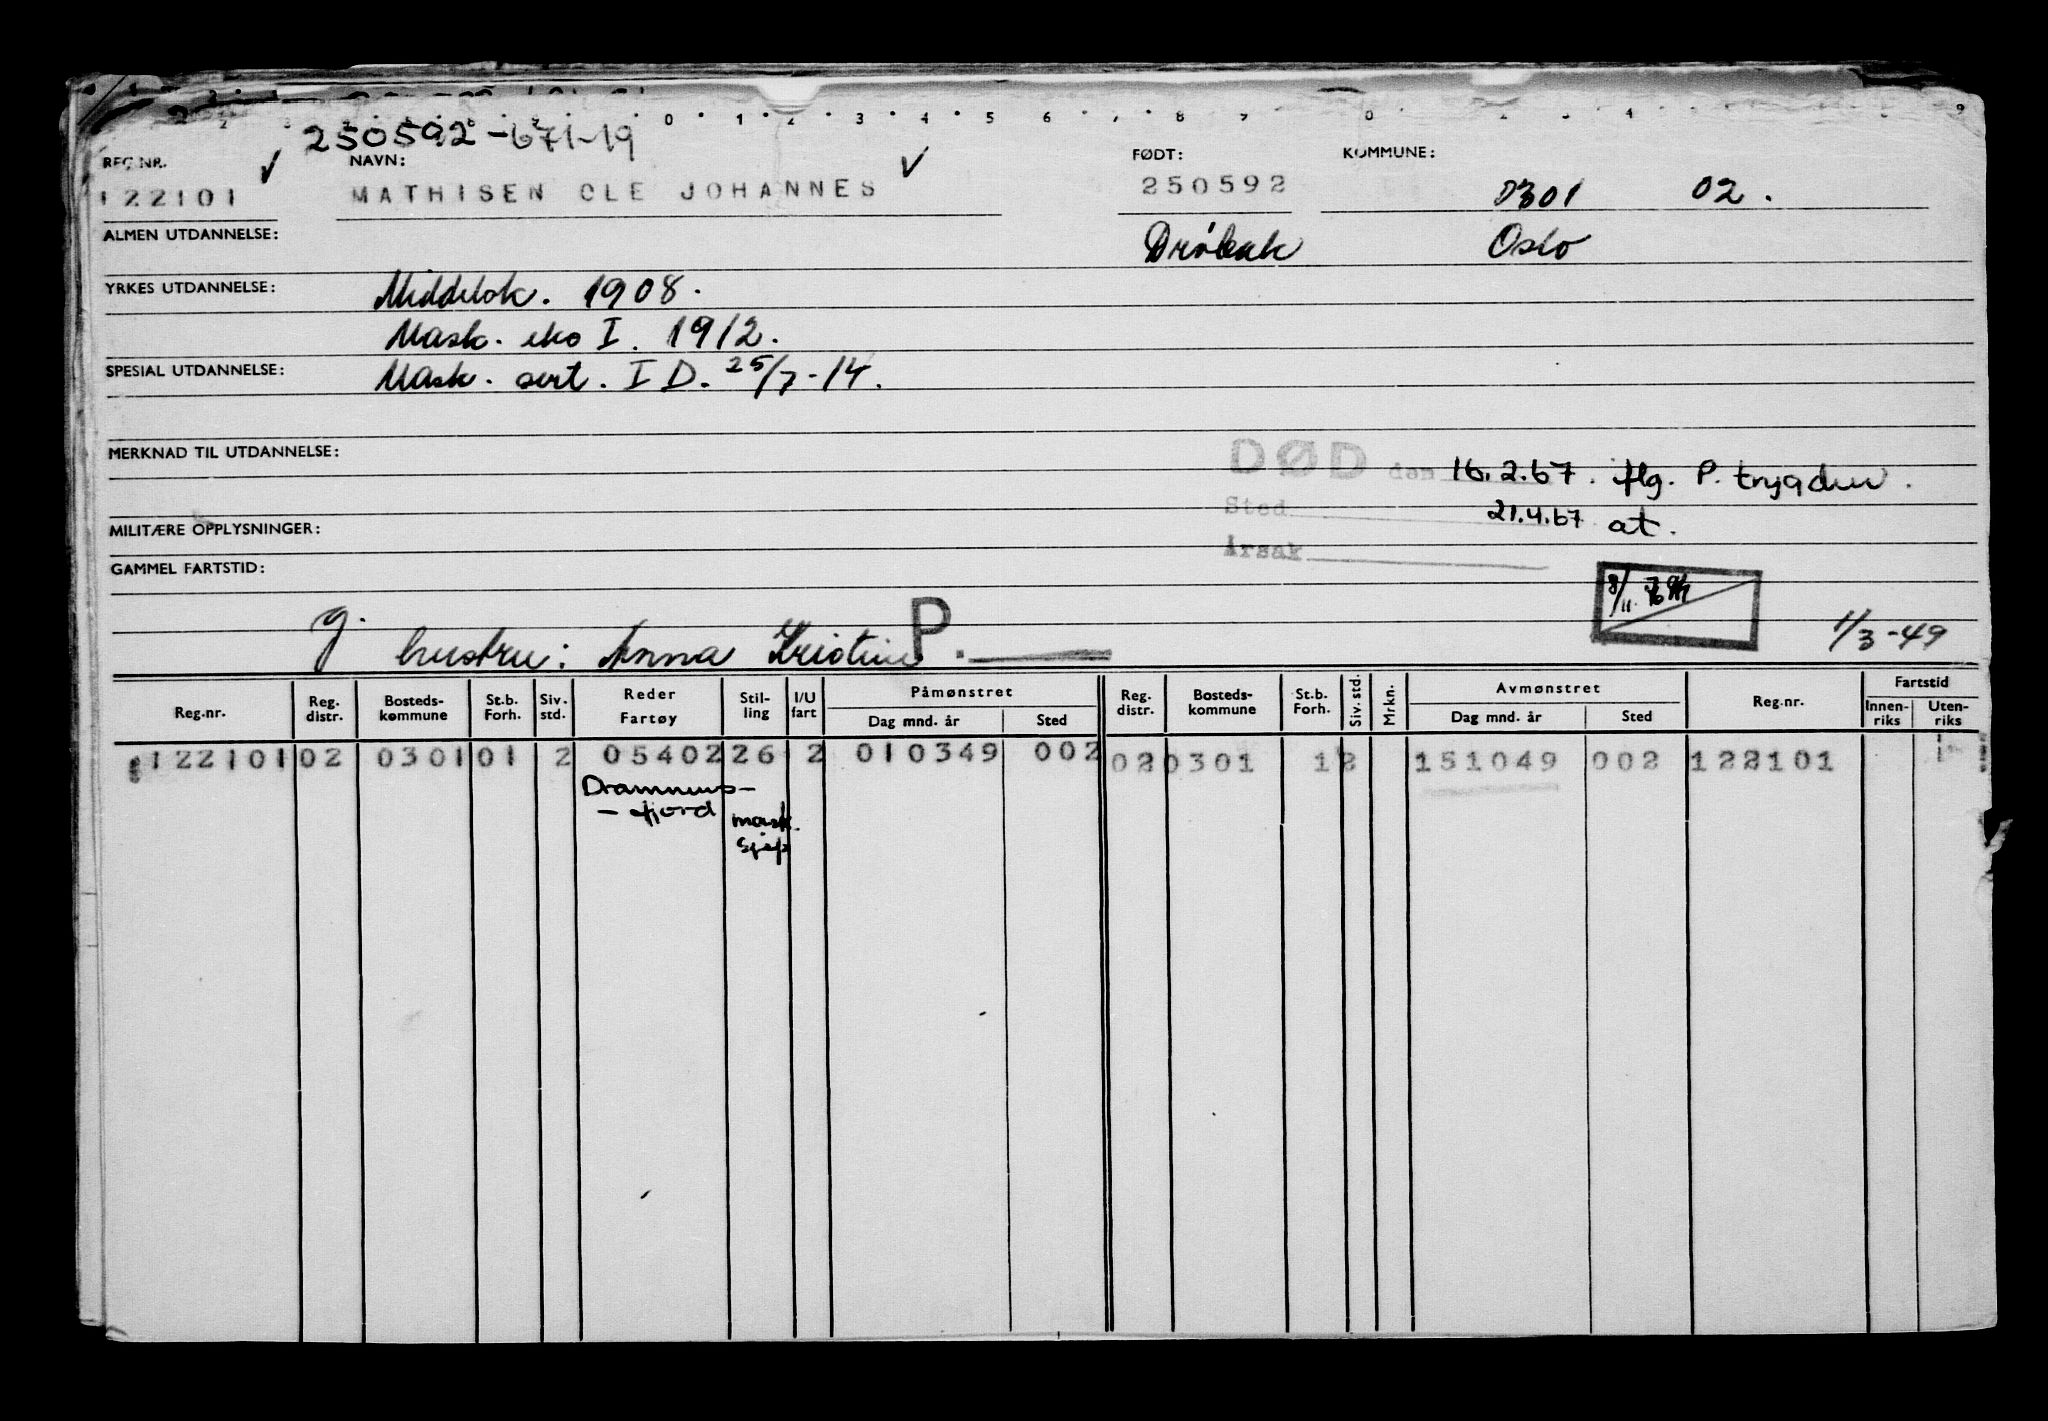 250592-671-19
REG.NR. NAVN: FØDT: KOMMUNE:
122101 MATHISEN OLE JOHANNES 250592 0301 02.
ALMEN UTDANNELSE: Drøbak Oslo
YRKES UTDANNELSE: Middelsk. 1908.
Mask. eks I. 1912.
SPESIAL UTDANNELSE: Mask. sert. I D. 25/7-14.
MERKNAD TIL UTDANNELSE:
DØD den 16.2.67. flg. P. trygden.
Sted 21.4.67 at.
MILITÆRE OPPLYSNINGER:
Årsak
GAMMEL FARTSTID:
8/11
g. P.
hustru: Anna Kristine 1/3-49
Reg.nr. Reg. distr. Bosteds-kommune St.b. Forh. Siv. std. Reder Fartøy Stil-ling I/U fart Påmønstret Dag mnd. år Sted Reg. distr. Bosteds-kommune St.b. Forh. Siv. std. Mrkn. Avmønstret Dag mnd. år Sted Reg.nr. Fartstid Innen-riks Uten-riks
122101 02 0301 01 2 05402 26 2 010349 002 02 0301 1 2 151049 002 122101
Drammens-
-fjord mask.
sjef